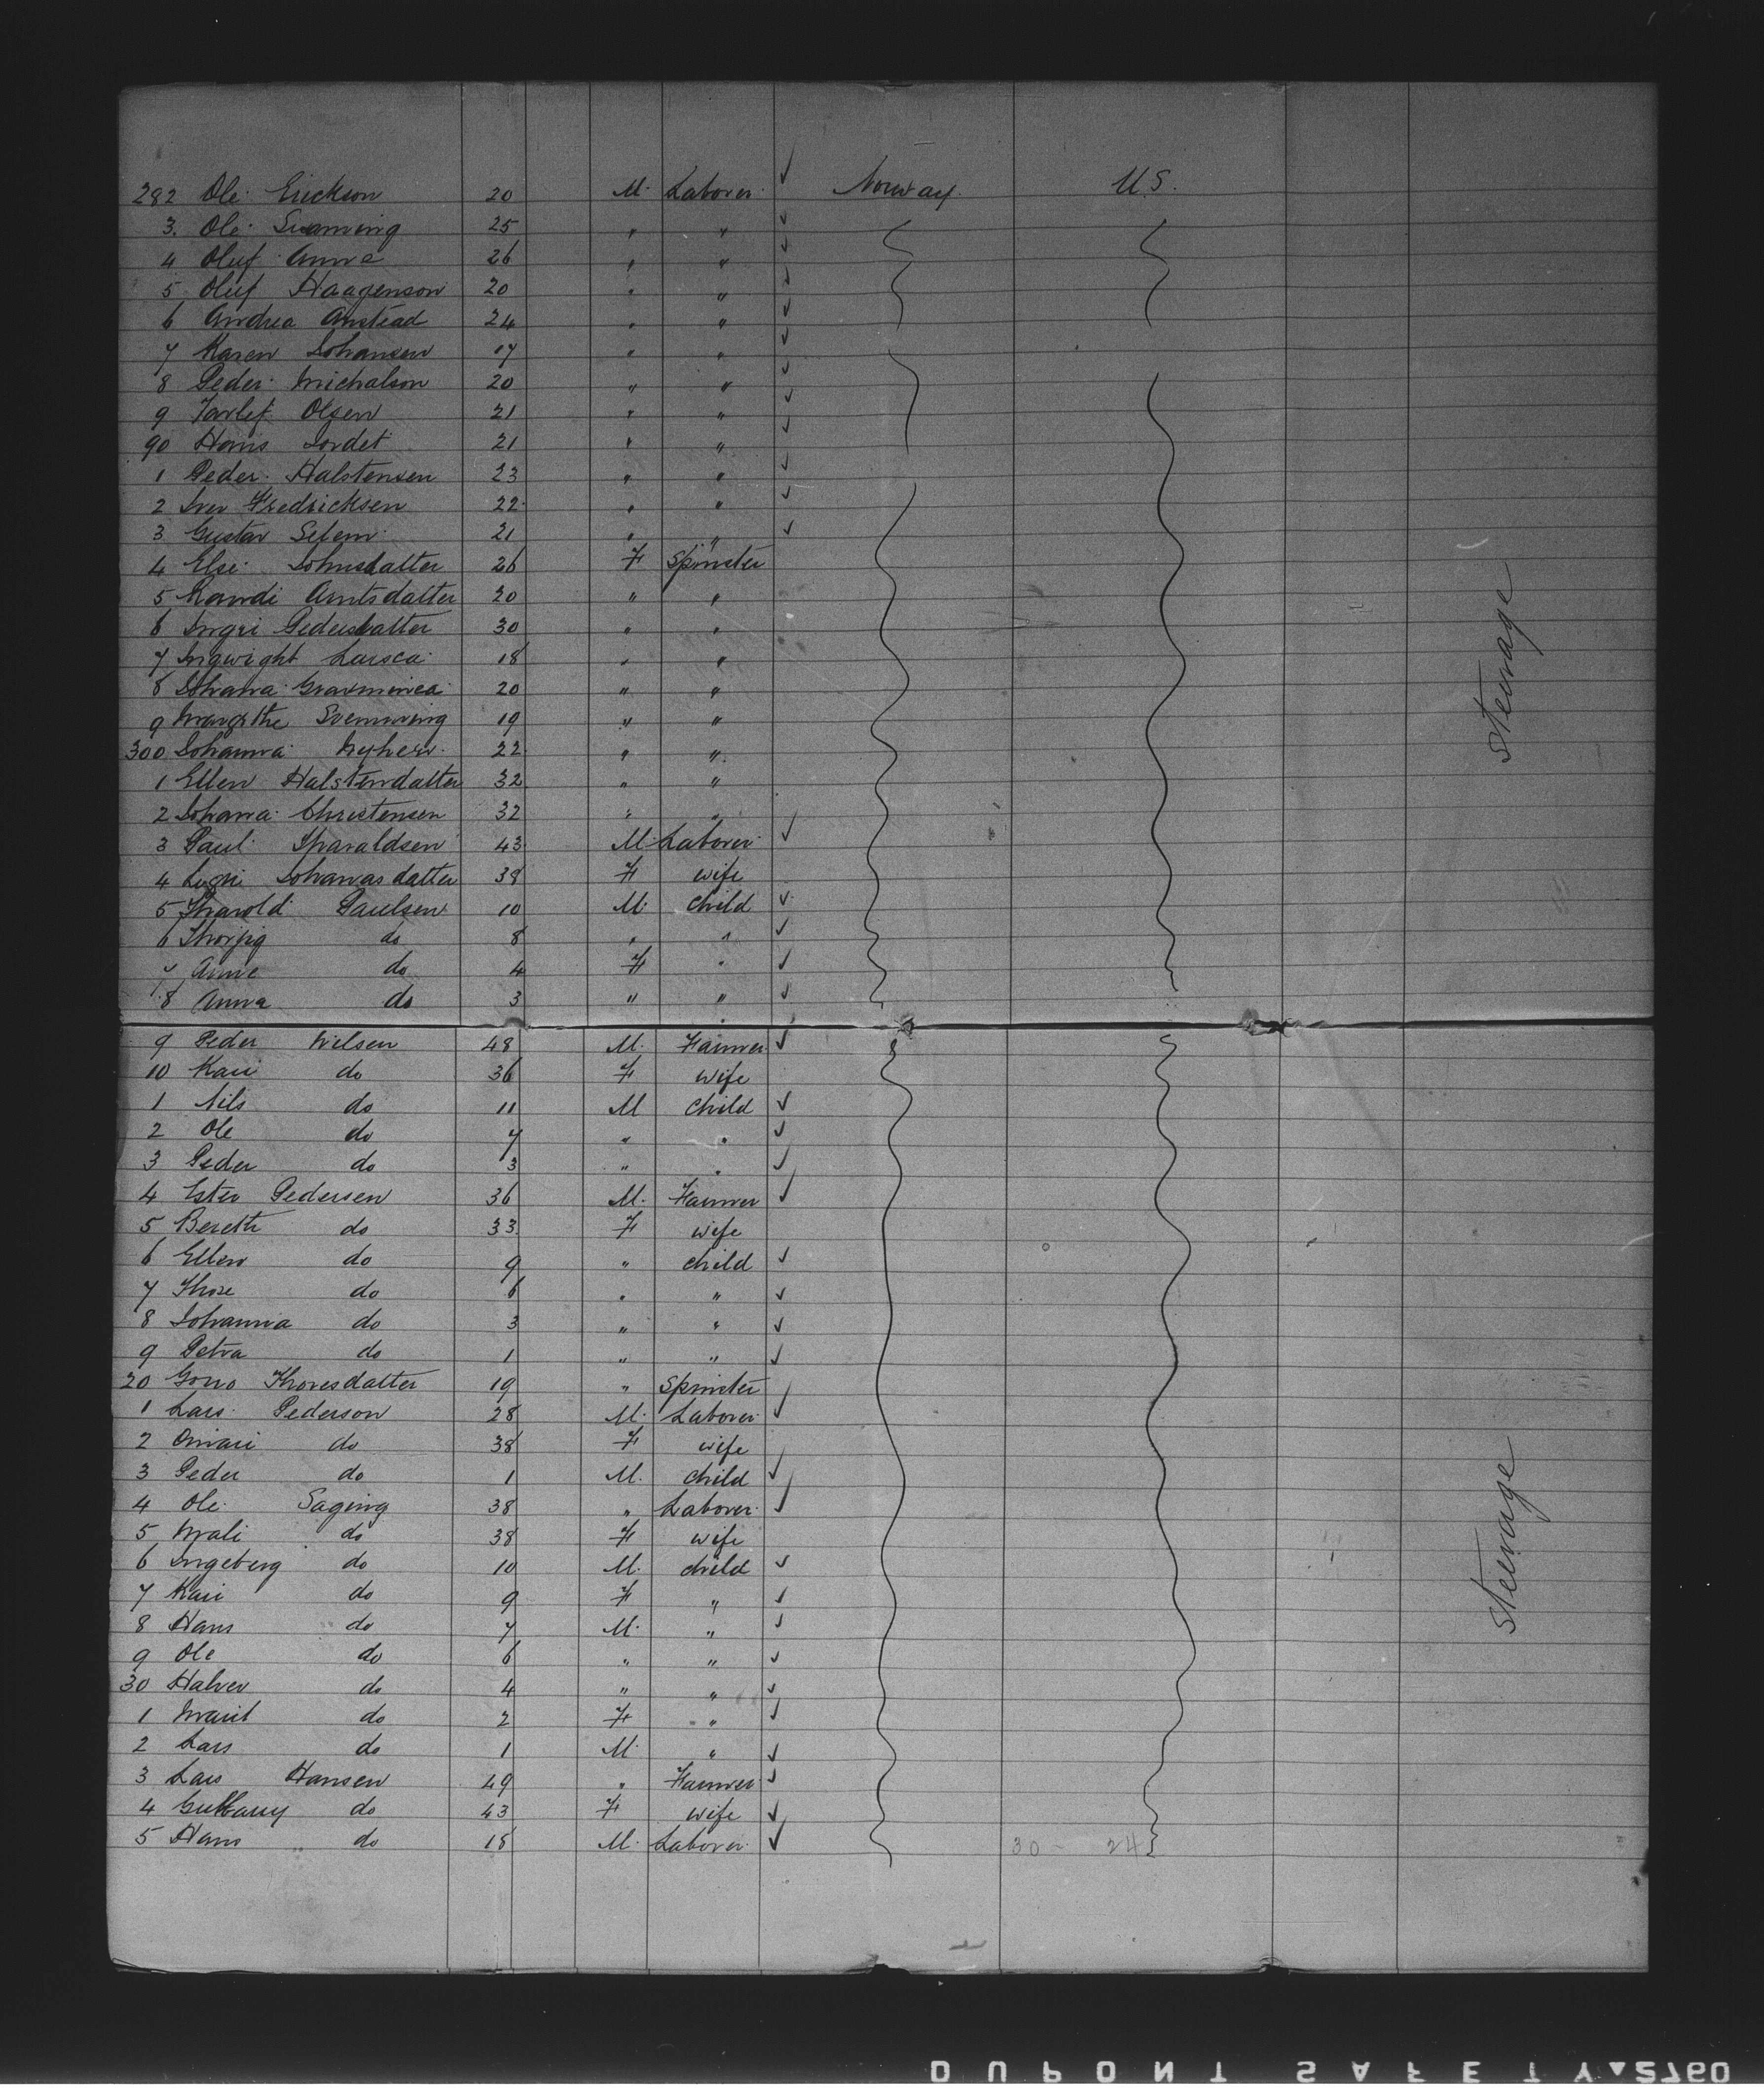 282 Ole Erickson 20 M. Laborer Norway U.S.
3. Ole Svemming 25 " "
4 Oluf Anna 26 " "
5 Oluf Haagenson 20 " "
6 Andrea Anstead 24 " "
7 Karen Johansen 17 " "
8 Peder Michalson 20 " "
9 Tarlef Olsen 21 " "
90 Hans Lordet 21 " "
1 Peder Halstensen 23 " "
2 Iver Fredricksen 22 " "
3 Gustav Selem 21 " "
4 Else Johnsdatter 26 F Spinster
5 Randi Arntsdatter 20 " "
6 Ingri Pedersdatter 30 " "
7 Ingwight Larsca 18 " "
8 Johana 20 " "
9 Margrthe Svemming 19 " "
300 Johanna Nyhers 22 " "
1 Ellen Halstendatter 32 " "
2 Johana Christensen 32 " "
3 Paul Tharaldsen 43 M Laborer
4 Johanasdatter 38 F wife
5 Tharold Paulsen 10 M. child
6 do 8 " "
7 Anne do 4 F "
8 Anna do 3 " "
Steerage
9 Peder Nilsen 48 M. Farmer
10 Kari do 36 F wife
1 Nils do 11 M child
2 Ole do 7 " "
3 Peder do 3 " "
4 Ester Pedersen 36 M. Farmer
5 Bereth do 33 F wife
6 Ellen do 9 " child
7 Thore do 6 " "
8 Johanna do 3 " "
9 Petra do 1 " "
20 Goro Thoresdatter 19 " Spinster
1 Lars Pederson 28 M. Laborer
2 do 38 F wife
3 Peder do 1 M. child
4 Ole Saging 38 " Laborer
5 Mali do 38 F wife
6 Ingeberg do 10 M. child
7 Kari do 9 F "
8 Hans do 7 M. "
9 Ole do 6 " "
30 Halver do 4 " "
1 Marit do 2 F "
2 Lars do 1 M. "
3 Lars Hansen 49 " Farmer
4 do 43 F wife
5 Hans do 18 M. Laborer 30 - 24
Steerage
DUPONT SAFETY 2760